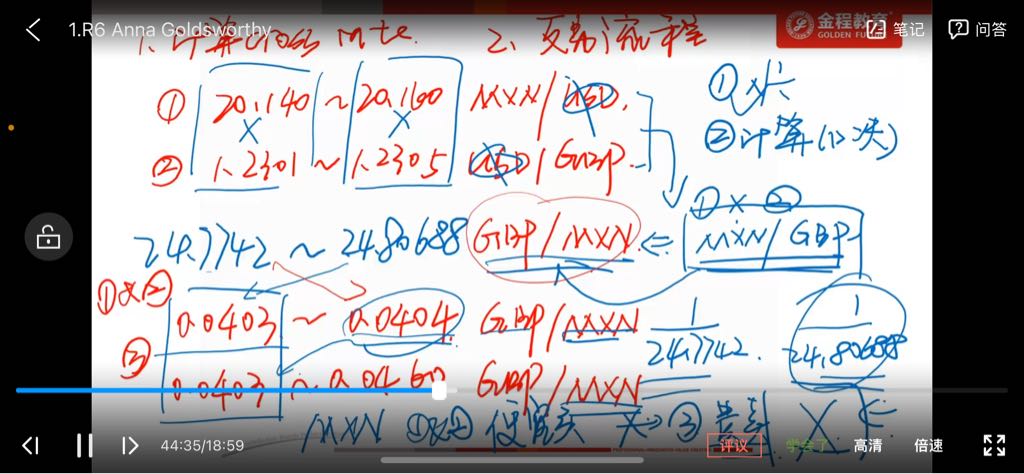 1.R6 Anna Goldsworthy
金程教育
GOLDEN FU
笔记
问答
1. 计算cross rate. 2、交易流程
① 20.140 ~ 20.160 MXN/USD.
② 1.2301 ~ 1.2305 USD/GBP.
②计算(1)决)
①×②
24.7742 ~ 24.80688 GBP/MXN ⇐ MXN/GBP
①×②
0.0403 ~ 0.0404 GBP/MXN
1/24.7742. 1/24.80688
③ 0.0403 ~ 0.0460 GBP/MXN
MXN ①×② 便宜买 → ③ 卖
44:35/18:59
评议
学会了
高清
倍速